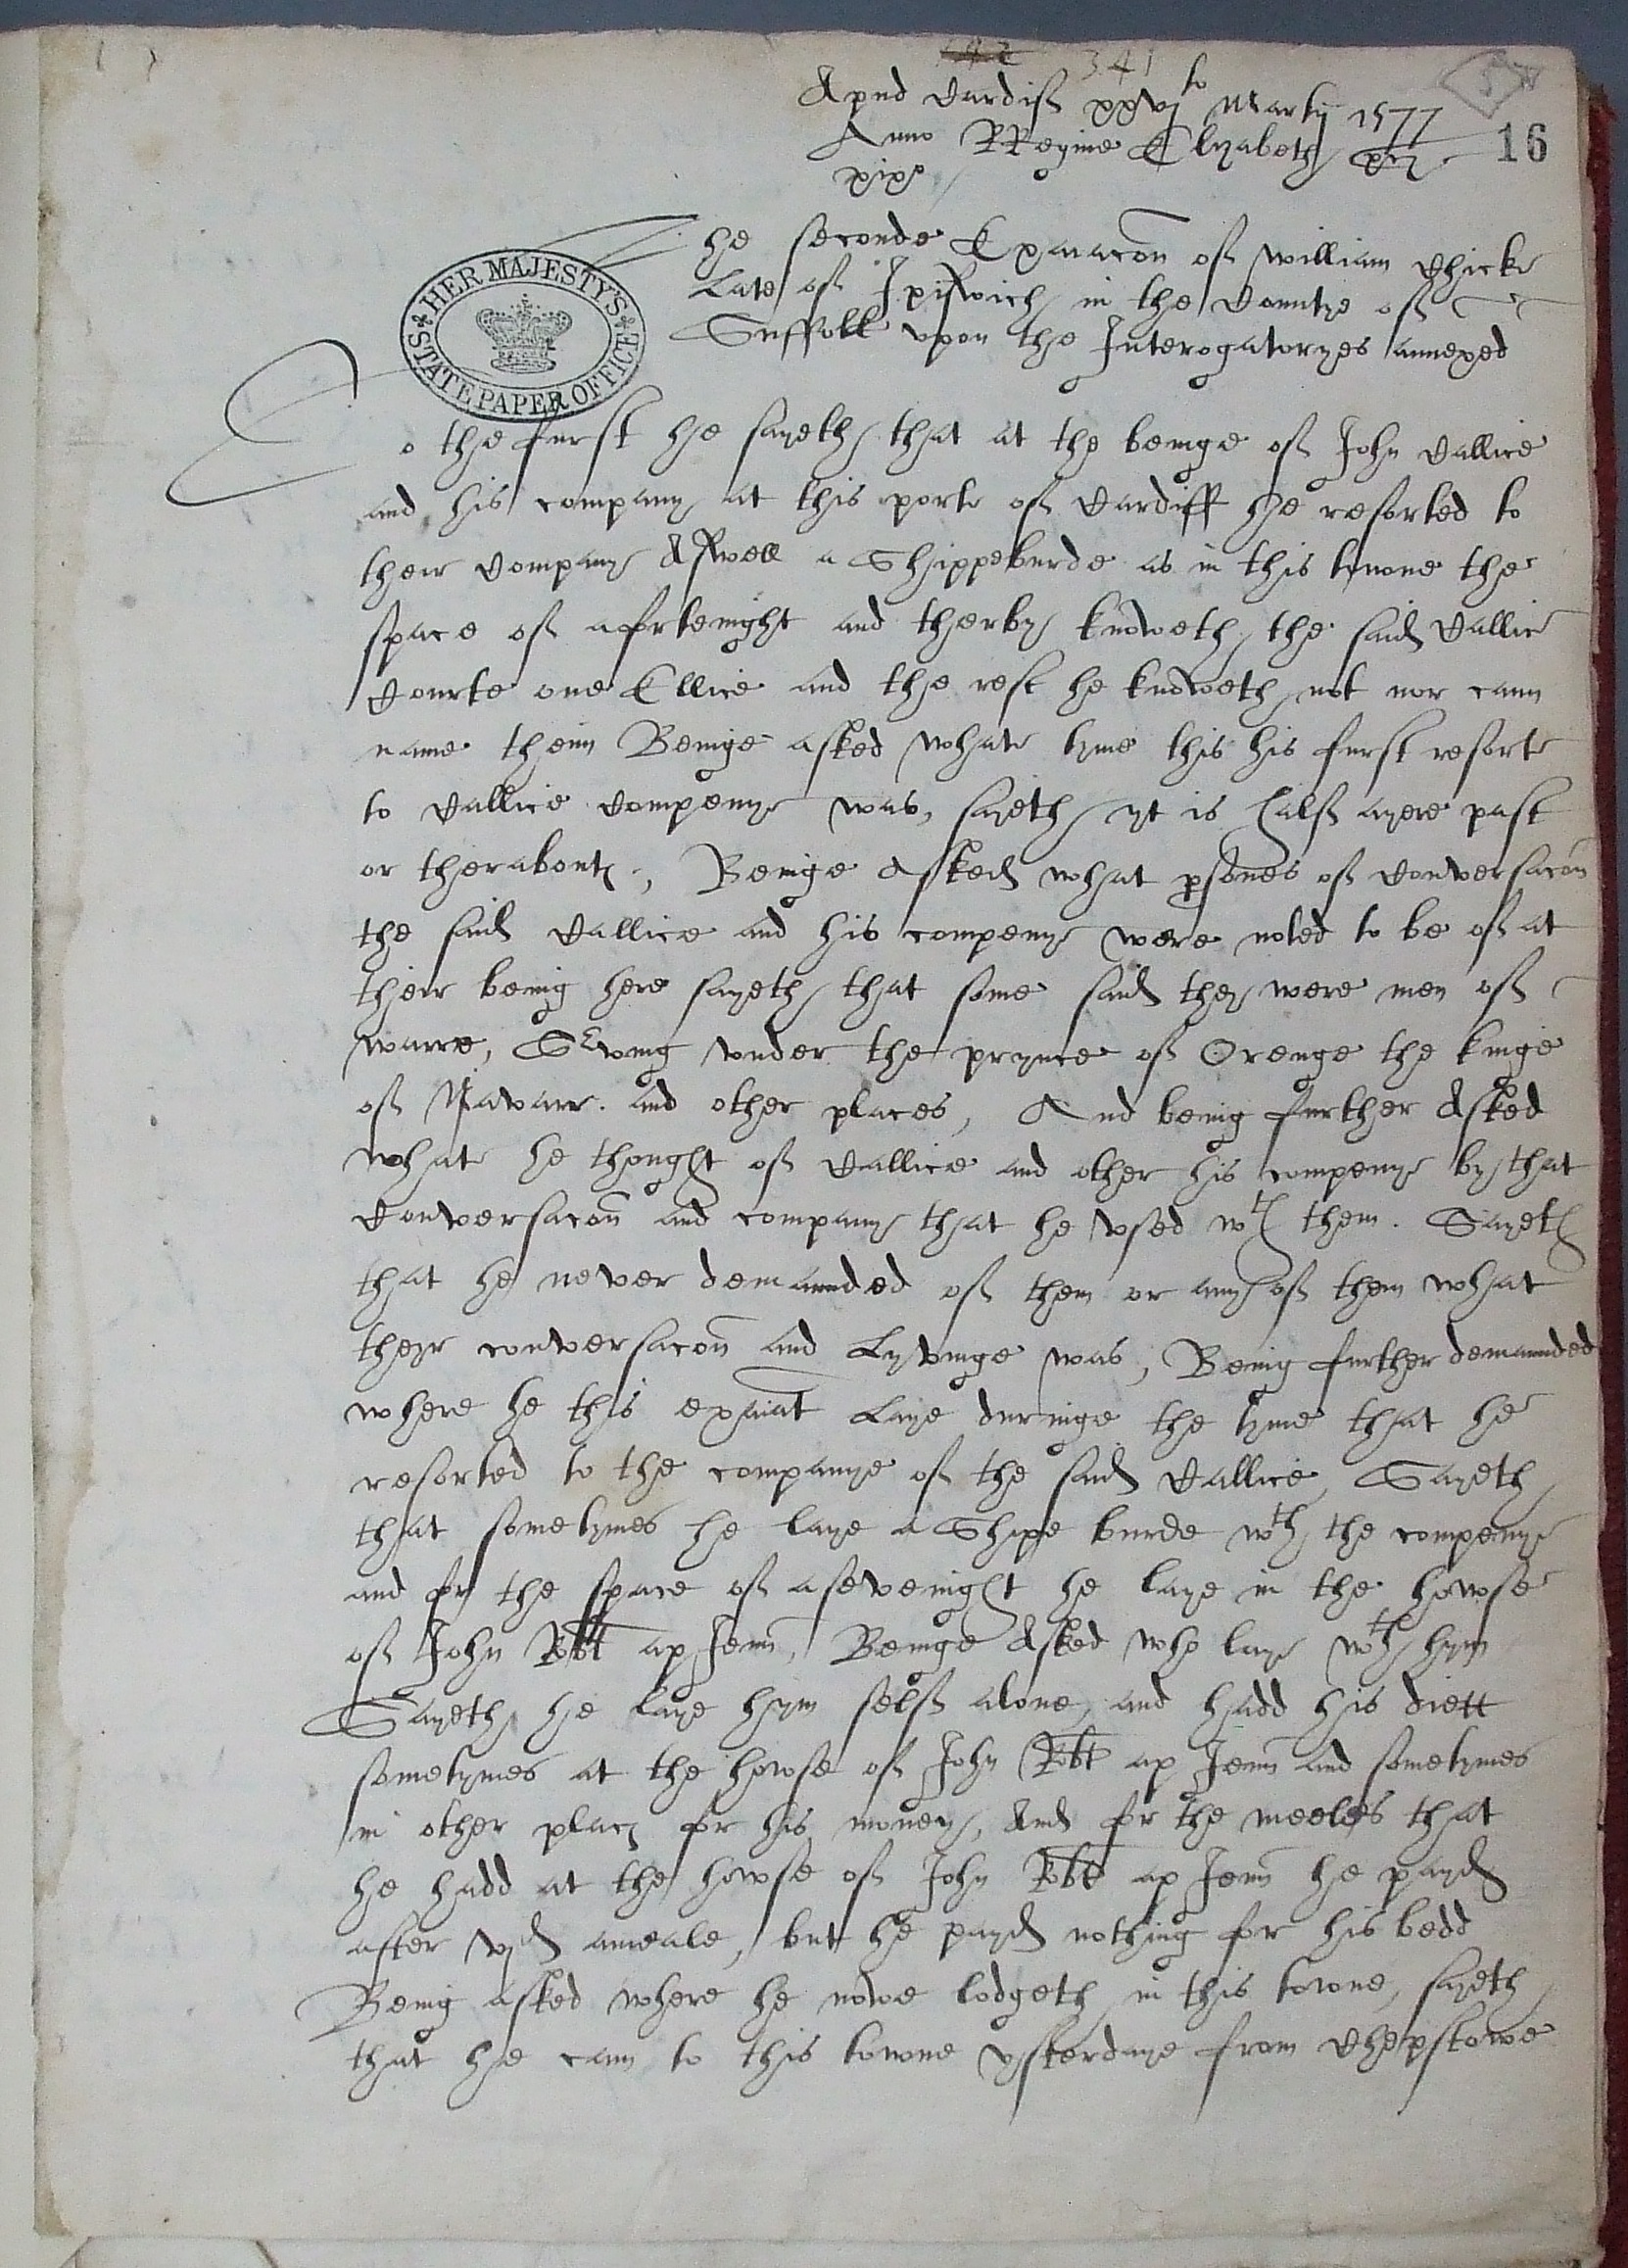 341
16
Apud Cardiff xxvj to Martij 1577
Anno RRegine Elyzabeth &c
xixo
HER MAJESTY'S STATE PAPER OFFICE
The seconde Exaiacōn of William Chicke
Late of Ipiswich in the Countye of
Suffolk vpon the Interogatoryes annexed
To the furst he sayeth that at the beinge of John Callice
and his company at this porte of Cardiff he resorted to
their Company Aswell a Shippeburde as in this towne the
space of a fortenight and therby knoweth the said Callice
Courte one Ellice and the rest he knoweth not nor cann
name theim Beinge asked whate tyme this his furst resorte
to Callice Compenye was, sayeth yt is half a yere past
or therabout, Beinge Asked what psones of Conversacōn
the said Callice and his compenye were noted to be of at
their being here sayeth that some said they were men of
warre, Serving vnder the prynce of Orenge the kinge
of Navarr. and other places, And being further Asked
whate he thought of Callice and other his compenye by that
Conversacōn and company that he vsed wth them. Sayeth
that he never demaunded of them or any of them what
theyr conversacōn and Lyvinge was, Being further demaunded
where he this exaiat Laye duringe the tyme that he
resorted to the companye of the said Callice, Sayeth
that sometymes he laye a Shipe burde wth the compenye
and for the space of a sevenight he laye in the howse
of John Robt ap Ieun, Beinge Asked who laye wth hym
Sayeth he laye hym self alone, and hadd his diett
sometymes at the howse of John Robt ap Ieun and sometymes
in other places for his money, And for the meeles that
he hadd at the howse of John Robt ap Ieun he payd
after vjd a meale, but he payd nothing for his bedd
Being asked where he nowe lodgeth in this towne, sayeth
that he cam to this towne ysterdaye from Chepstowe